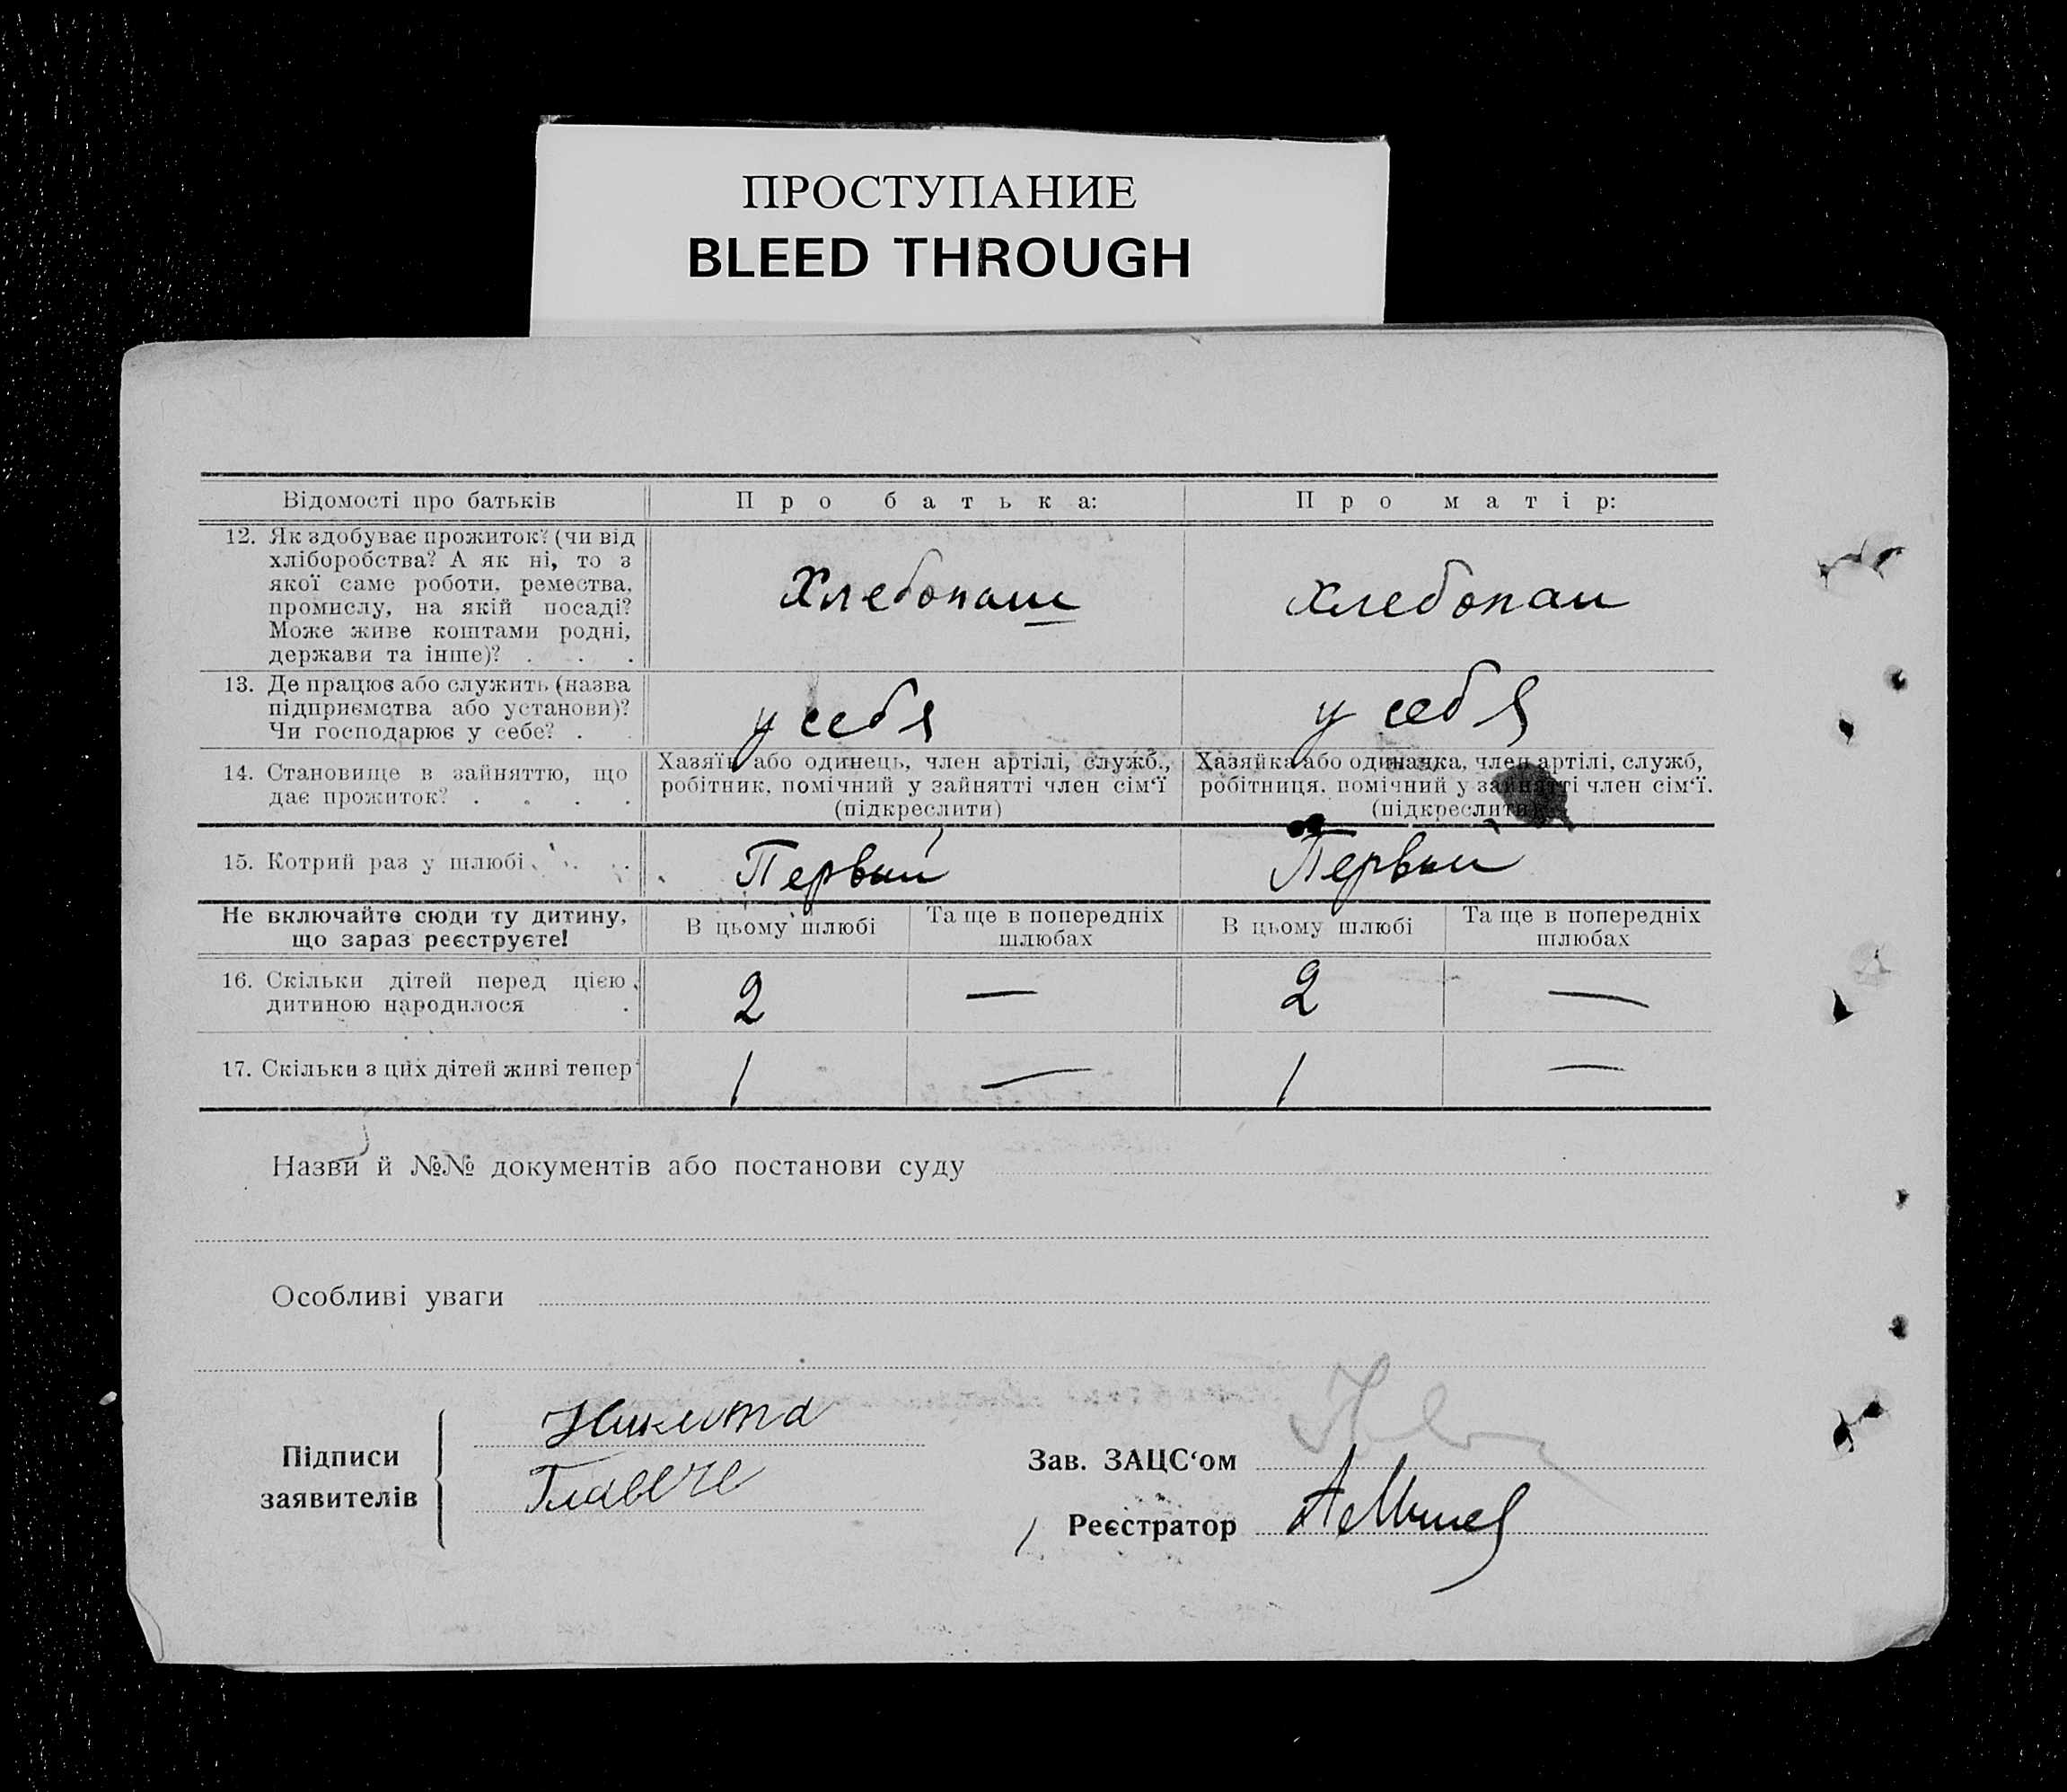 ПРОСТУПАНИЕ
BLEED THROUGH
Відомості про батьків
Про батька:
Про матір:
12. Як здобуває прожиток? (чи від
хліборобства? А як ні, то з
якої саме роботи, ремества,
промислу, на якій посаді?
Може живе коштами родні,
держави та інше)? . . .
Хлебопаш
Хлебопаш
13. Де працює або служить (назва
підприємства або установи)?
Чи господарює у себе? .
у себя
у себя
14. Становище в зайняттю, що
дає прожиток? . . . .
Хазяїн або одинець, член артілі, служб.,
робітник, помічний у зайнятті член сім'ї
(підкреслити)
Хазяйка або одиначка, член артілі, служб,
робітниця, помічний у зайнятті член сім'ї.
(підкреслити)
15. Котрий раз у шлюбі . . .
Первый
Первый
Не включайте сюди ту дитину,
що зараз реєструєте!
В цьому шлюбі
Та ще в попередніх
шлюбах
В цьому шлюбі
Та ще в попередніх
шлюбах
16. Скільки дітей перед цією
дитиною народилося .
2
—
2
—
17. Скільки з цих дітей живі тепер
1
—
1
—
Назви й №№ документів або постанови суду
Особливі уваги
Підписи
заявителів
Никита
Главече
Зав. ЗАЦС'ом
Реєстратор